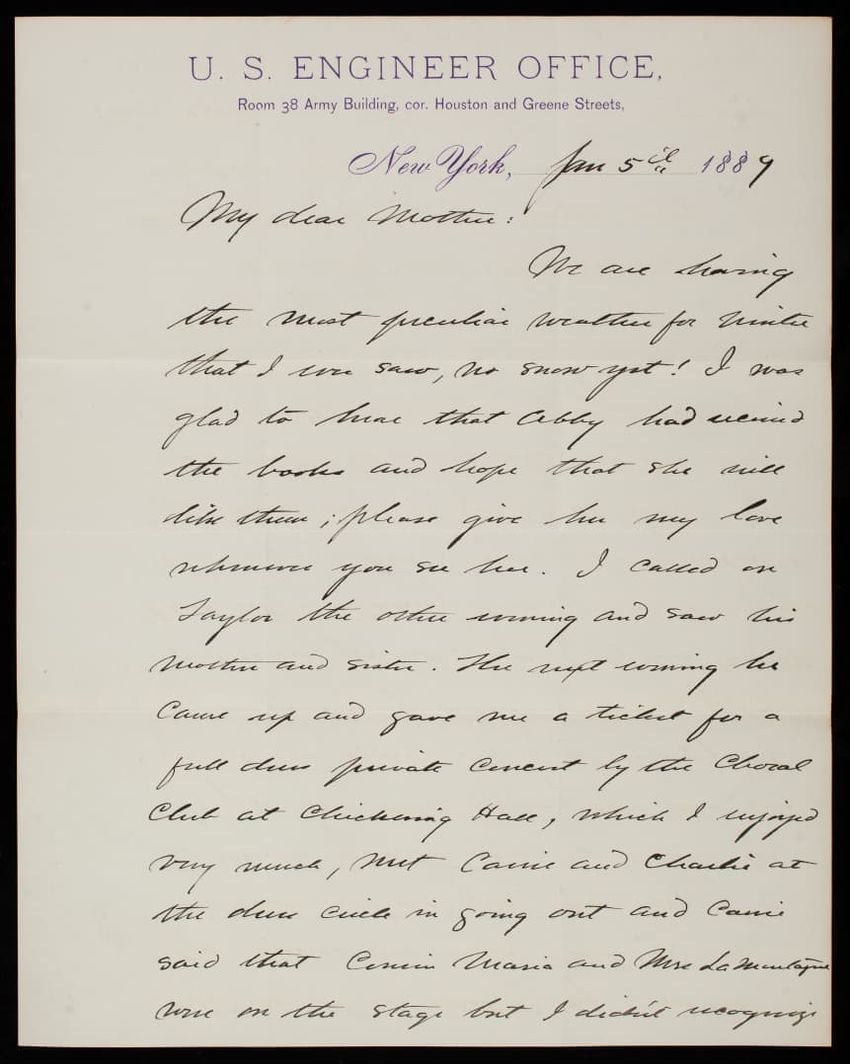 U. S. ENGINEER OFFICE,
Room 38 Army Building, cor. Houston and Greene Streets,
New York, Jan 5th 1889
My dear Mother:
We are having
the most peculiar weather for winter
that I ever saw, no snow yet! I was
glad to hear that Abby had received
the books and hope that she will
like them; please give her my love
whenever you see her. I called on
Taylor the other evening and saw his
mother and sister. The next evening he
came up and gave me a ticket for a
full dress private concert by the Choral
Club at Chickering Hall, which I enjoyed
very much, met Carrie and Charlie at
the dress circle in going out and Carrie
said that Cousin Maria and Mrs LaMontagne
were on the stage but I didn't recognize